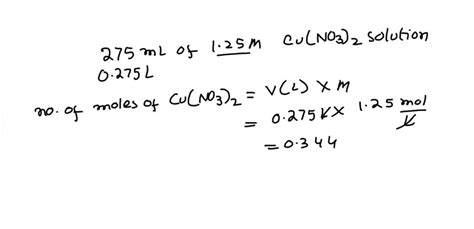 275 mL of 1.25M Cu(NO3)2 solution
0.275L
no. of moles of Cu(NO3)2 = V(L) X M
= 0.275L X 1.25 mol/L
= 0.344